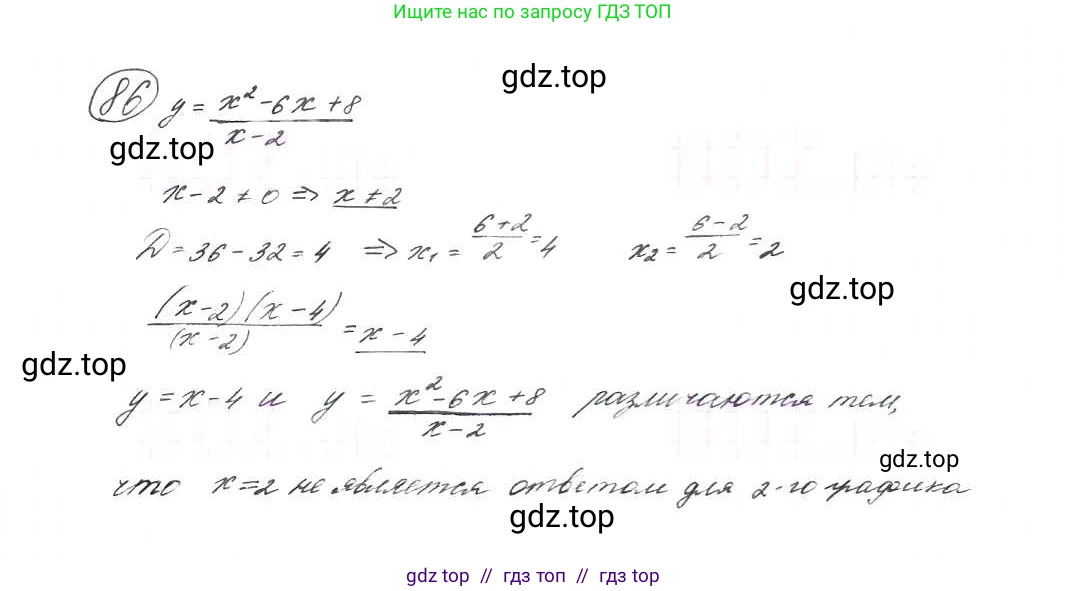 Ищите нас по запросу ГДЗ ТОП
gdz.top
86 y = (x² - 6x + 8)/(x - 2)
gdz.top
x - 2 ≠ 0 => x ≠ 2
D = 36 - 32 = 4 => x₁ = (6+2)/2 = 4 x₂ = (6-2)/2 = 2
gdz.top
((x-2)(x-4))/(x-2) = x - 4
gdz.top
y = x - 4 и y = (x² - 6x + 8)/(x - 2) различаются тем,
gdz.top
что x = 2 не является ответом для 2-го графика
gdz.top
gdz top // гдз топ // gdz top